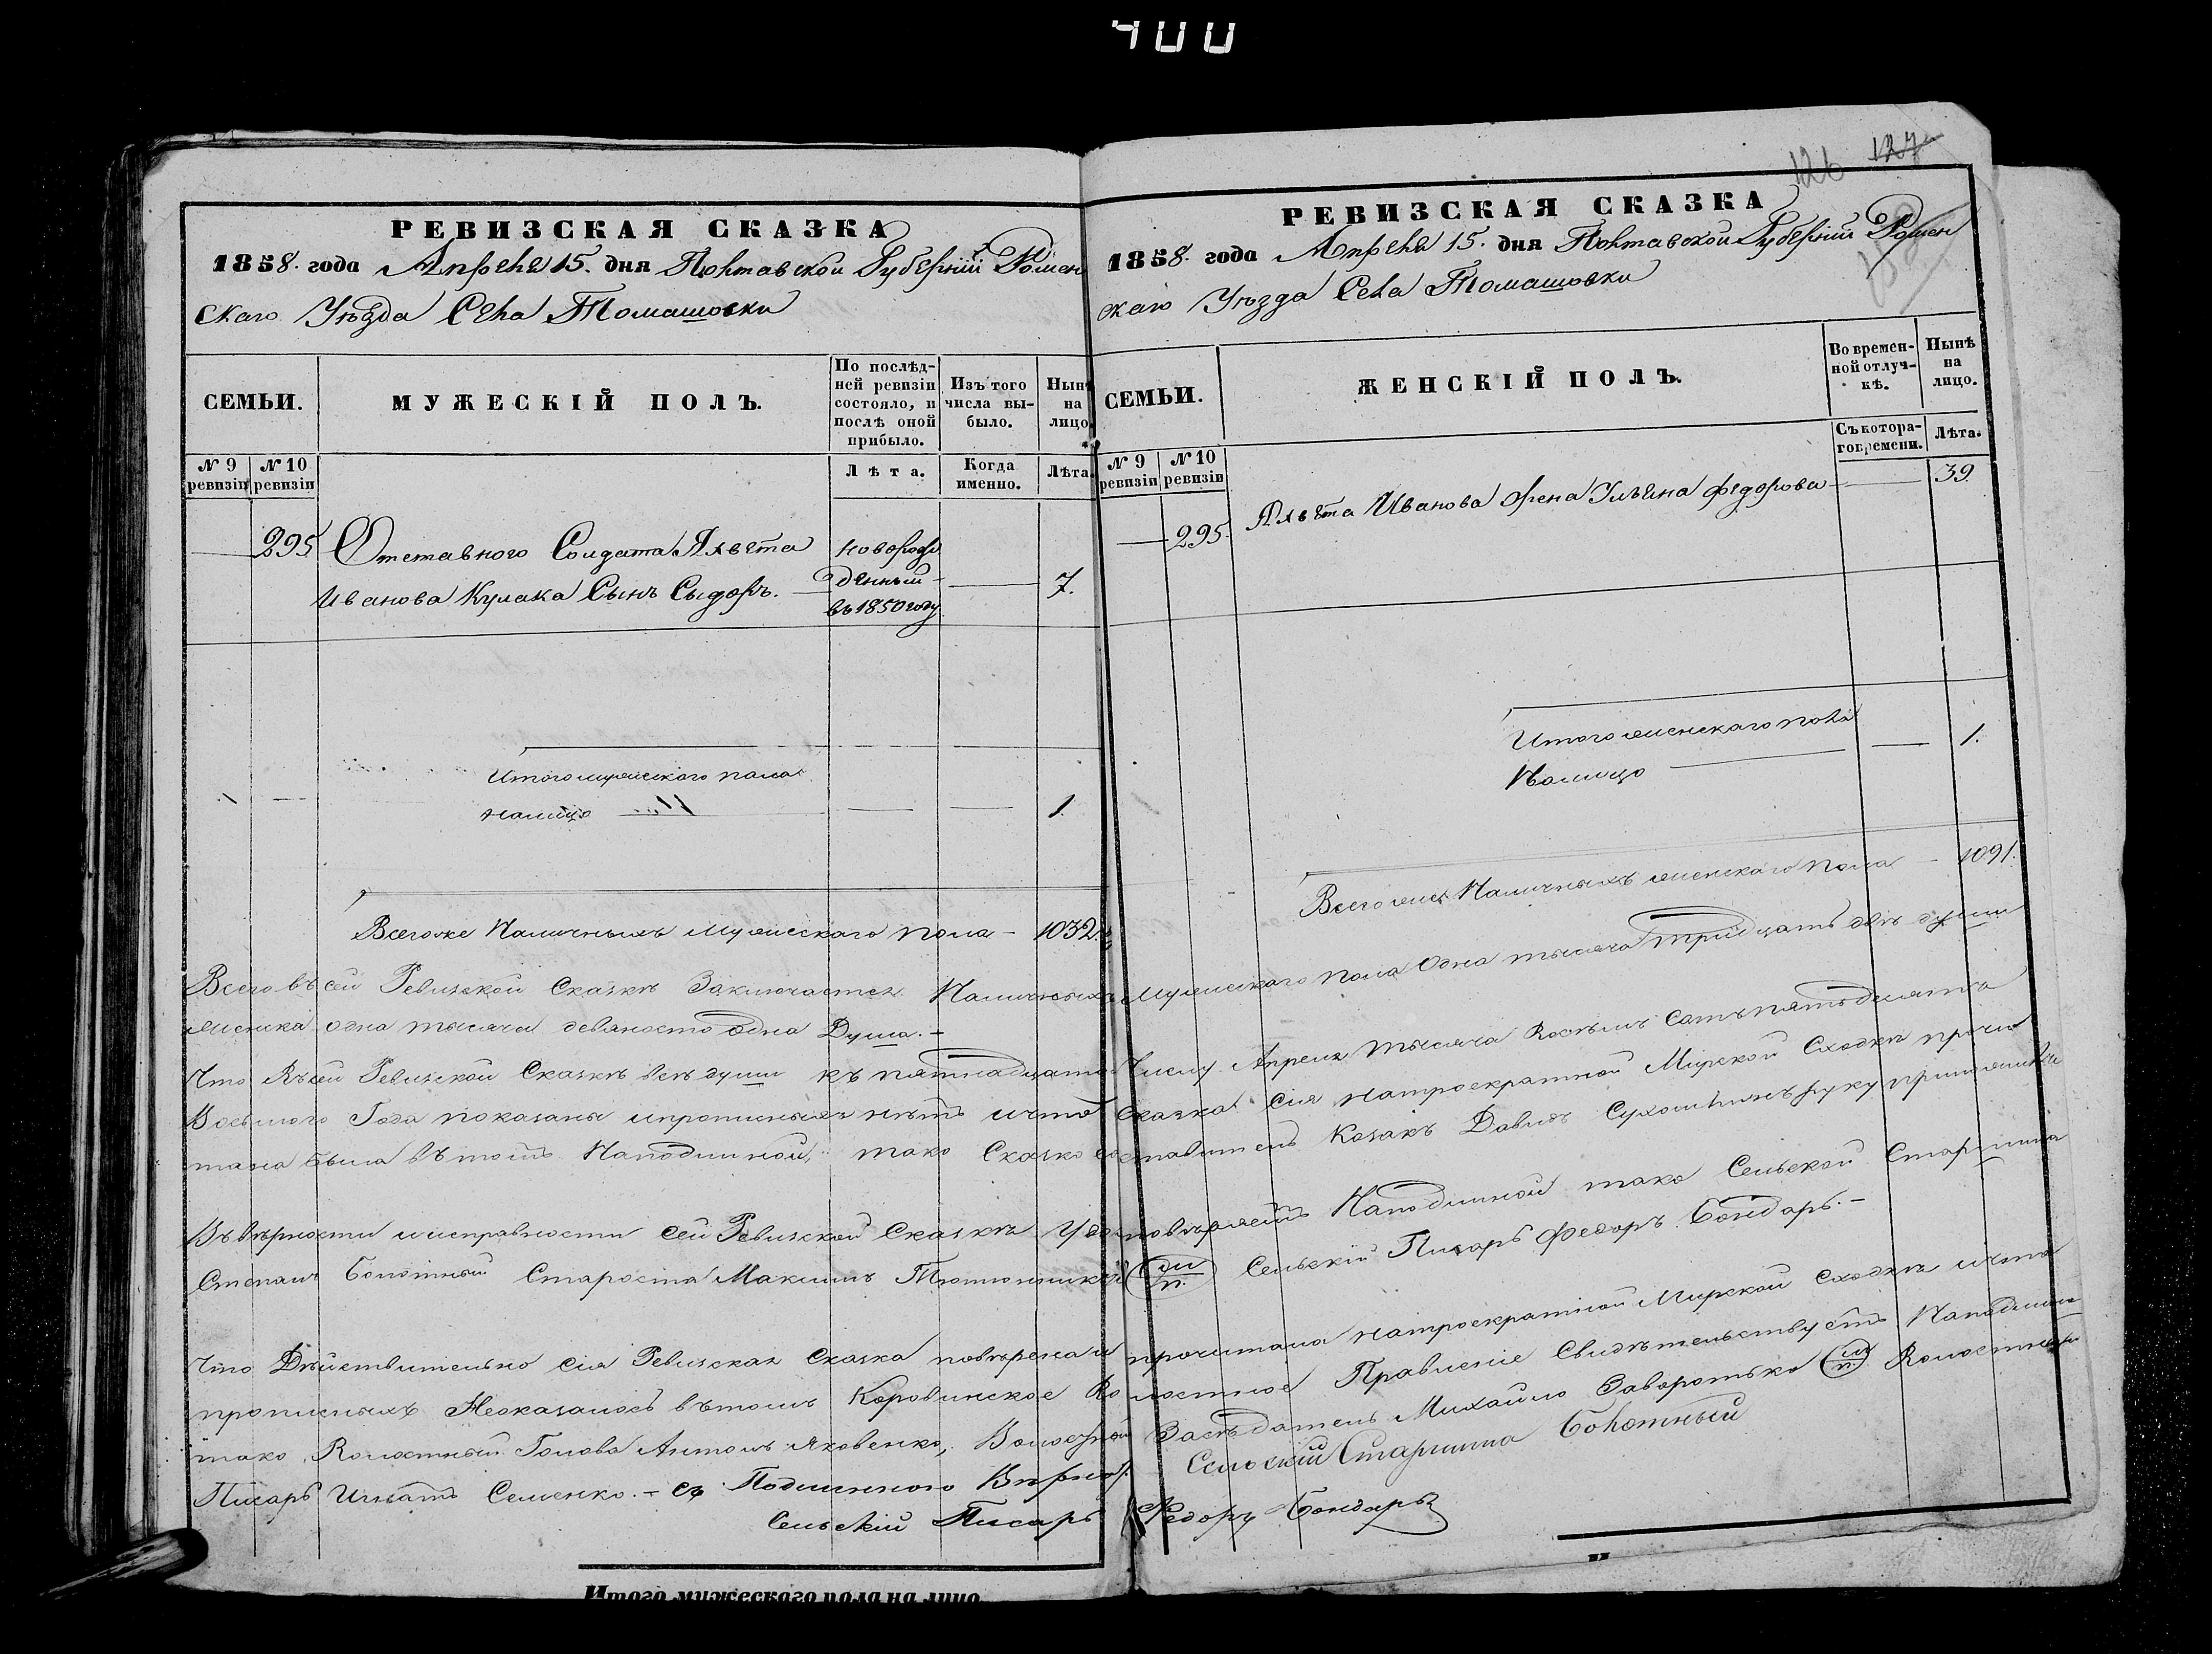 400
126 127
РЕВИЗСКАЯ СКАЗКА
1858. года Апреля 15. дня Полтавской Губернии Ромен
скаго Уѣзда Села Томашовки
СЕМЬИ.
МУЖЕСКІЙ ПОЛЪ.
По послѣд-
ней ревизіи
состояло, и
послѣ оной
прибыло.
Изъ того
числа вы-
было.
Нынѣ
на
лицо
№ 9
ревизіи
№ 10
ревизіи
Лѣта.
Когда
именно.
Лѣта.
295 Отставного Солдата Алвета новорож
Иванова Кулака Сынъ Сыдоръ. — денный — 7.
въ 1850 году
Итого мужескаго пола
налицо — — — 1
Всегоже Наличныхъ Мужескаго пола - 1032.
РЕВИЗСКАЯ СКАЗКА
1858. года Апреля 15. дня Полтавской Губерніи Ромен
скаго Уѣзда Села Томашовки
СЕМЬИ.
ЖЕНСКІЙ ПОЛЪ.
Во времен-
ной отлуч-
кѣ.
Нынѣ
на
лицо.
№ 9
ревизіи
№ 10
ревизіи
Съ котора-
го времени.
Лѣта.
— 295. Алвета Иванова жена Ульяна Федорова — 39.
Итого женскаго пола
Налицо — — 1.
Всего жеж Наличныхъ женскаго пола - 1091.
Всего въ сей Ревизской Сказкѣ Заключается Наличныхъ Мужескаго пола Одна тысяча тридцать двѣ души
женска одна тысяча девяносто одна Душа. -
Что въ сей Ревизской Сказкѣ всѣ души къ пятнадцато Числу Апреля тысяча Восѣмъ Сотъ пятьдесятъ
Восьмого Года показаны и прописныхъ нѣтъ и что Сказка сія на троекратной Мірской Сходкѣ прочи
тана была въ томъ На подлинной, тако Сказко составитель Козакъ Давидъ Сухомлинъ руку приложилъ
Въ вѣрности и исправности сей Ревизской Сказкѣ Удостовѣряетъ На подлинной тако Сельской Старшина
Степанъ Болотный Староста Максимъ Тютюнникъ М.П. Сельскій Писарь Федоръ Бондарь. -
Что Дѣйствительно сія Ревизская Сказка повѣрена и прочитана на троекратной Мирской Сходкѣ и что
прописныхъ Неоказалось въ томъ Коровинское Волостное Правленіе Свидѣтельствуетъ На подлин
тако, Волостный Голова Антонъ Яковенко, Волостной Засѣдатель Михайло Заворотько М.П. Волостный
Писарь Игнатъ Семенко. - Съ Подлинного Вѣрно. Сельскій Старшина Болотный
Сельскій Писарь Федоръ Бондарь
Итого мужескаго пола на лицо